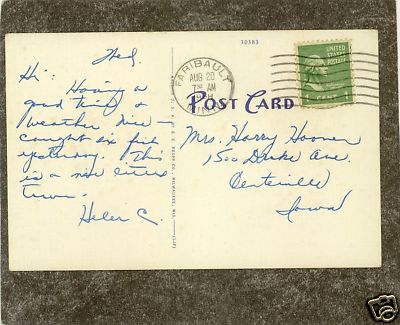 30383
Wed.
Hi: Having a
good time &
weather nice -
caught six fish
yesterday. This
is a nice little
town.
Helen C.
FARIBAULT
AUG 20
7 30 AM
MINN.
UNITED
STATES
POSTAGE
1 CENT 1
POST CARD
Mrs. Harry Hoover
1500 Drake Ave.
Centerville
Iowa